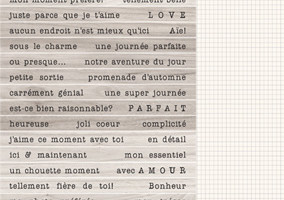 mon moment préféré! tellement belle
juste parce que je t'aime LOVE
aucun endroit n'est mieux qu'ici Aie!
sous le charme une journée parfaite
ou presque... notre aventure du jour
petite sortie promenade d'automne
carrément génial une super journée
est-ce bien raisonnable? PARFAIT
heureuse joli coeur complicité
j'aime ce moment avec toi en détail
ici & maintenant mon essentiel
un chouette moment avec AMOUR
tellement fière de toi! Bonheur